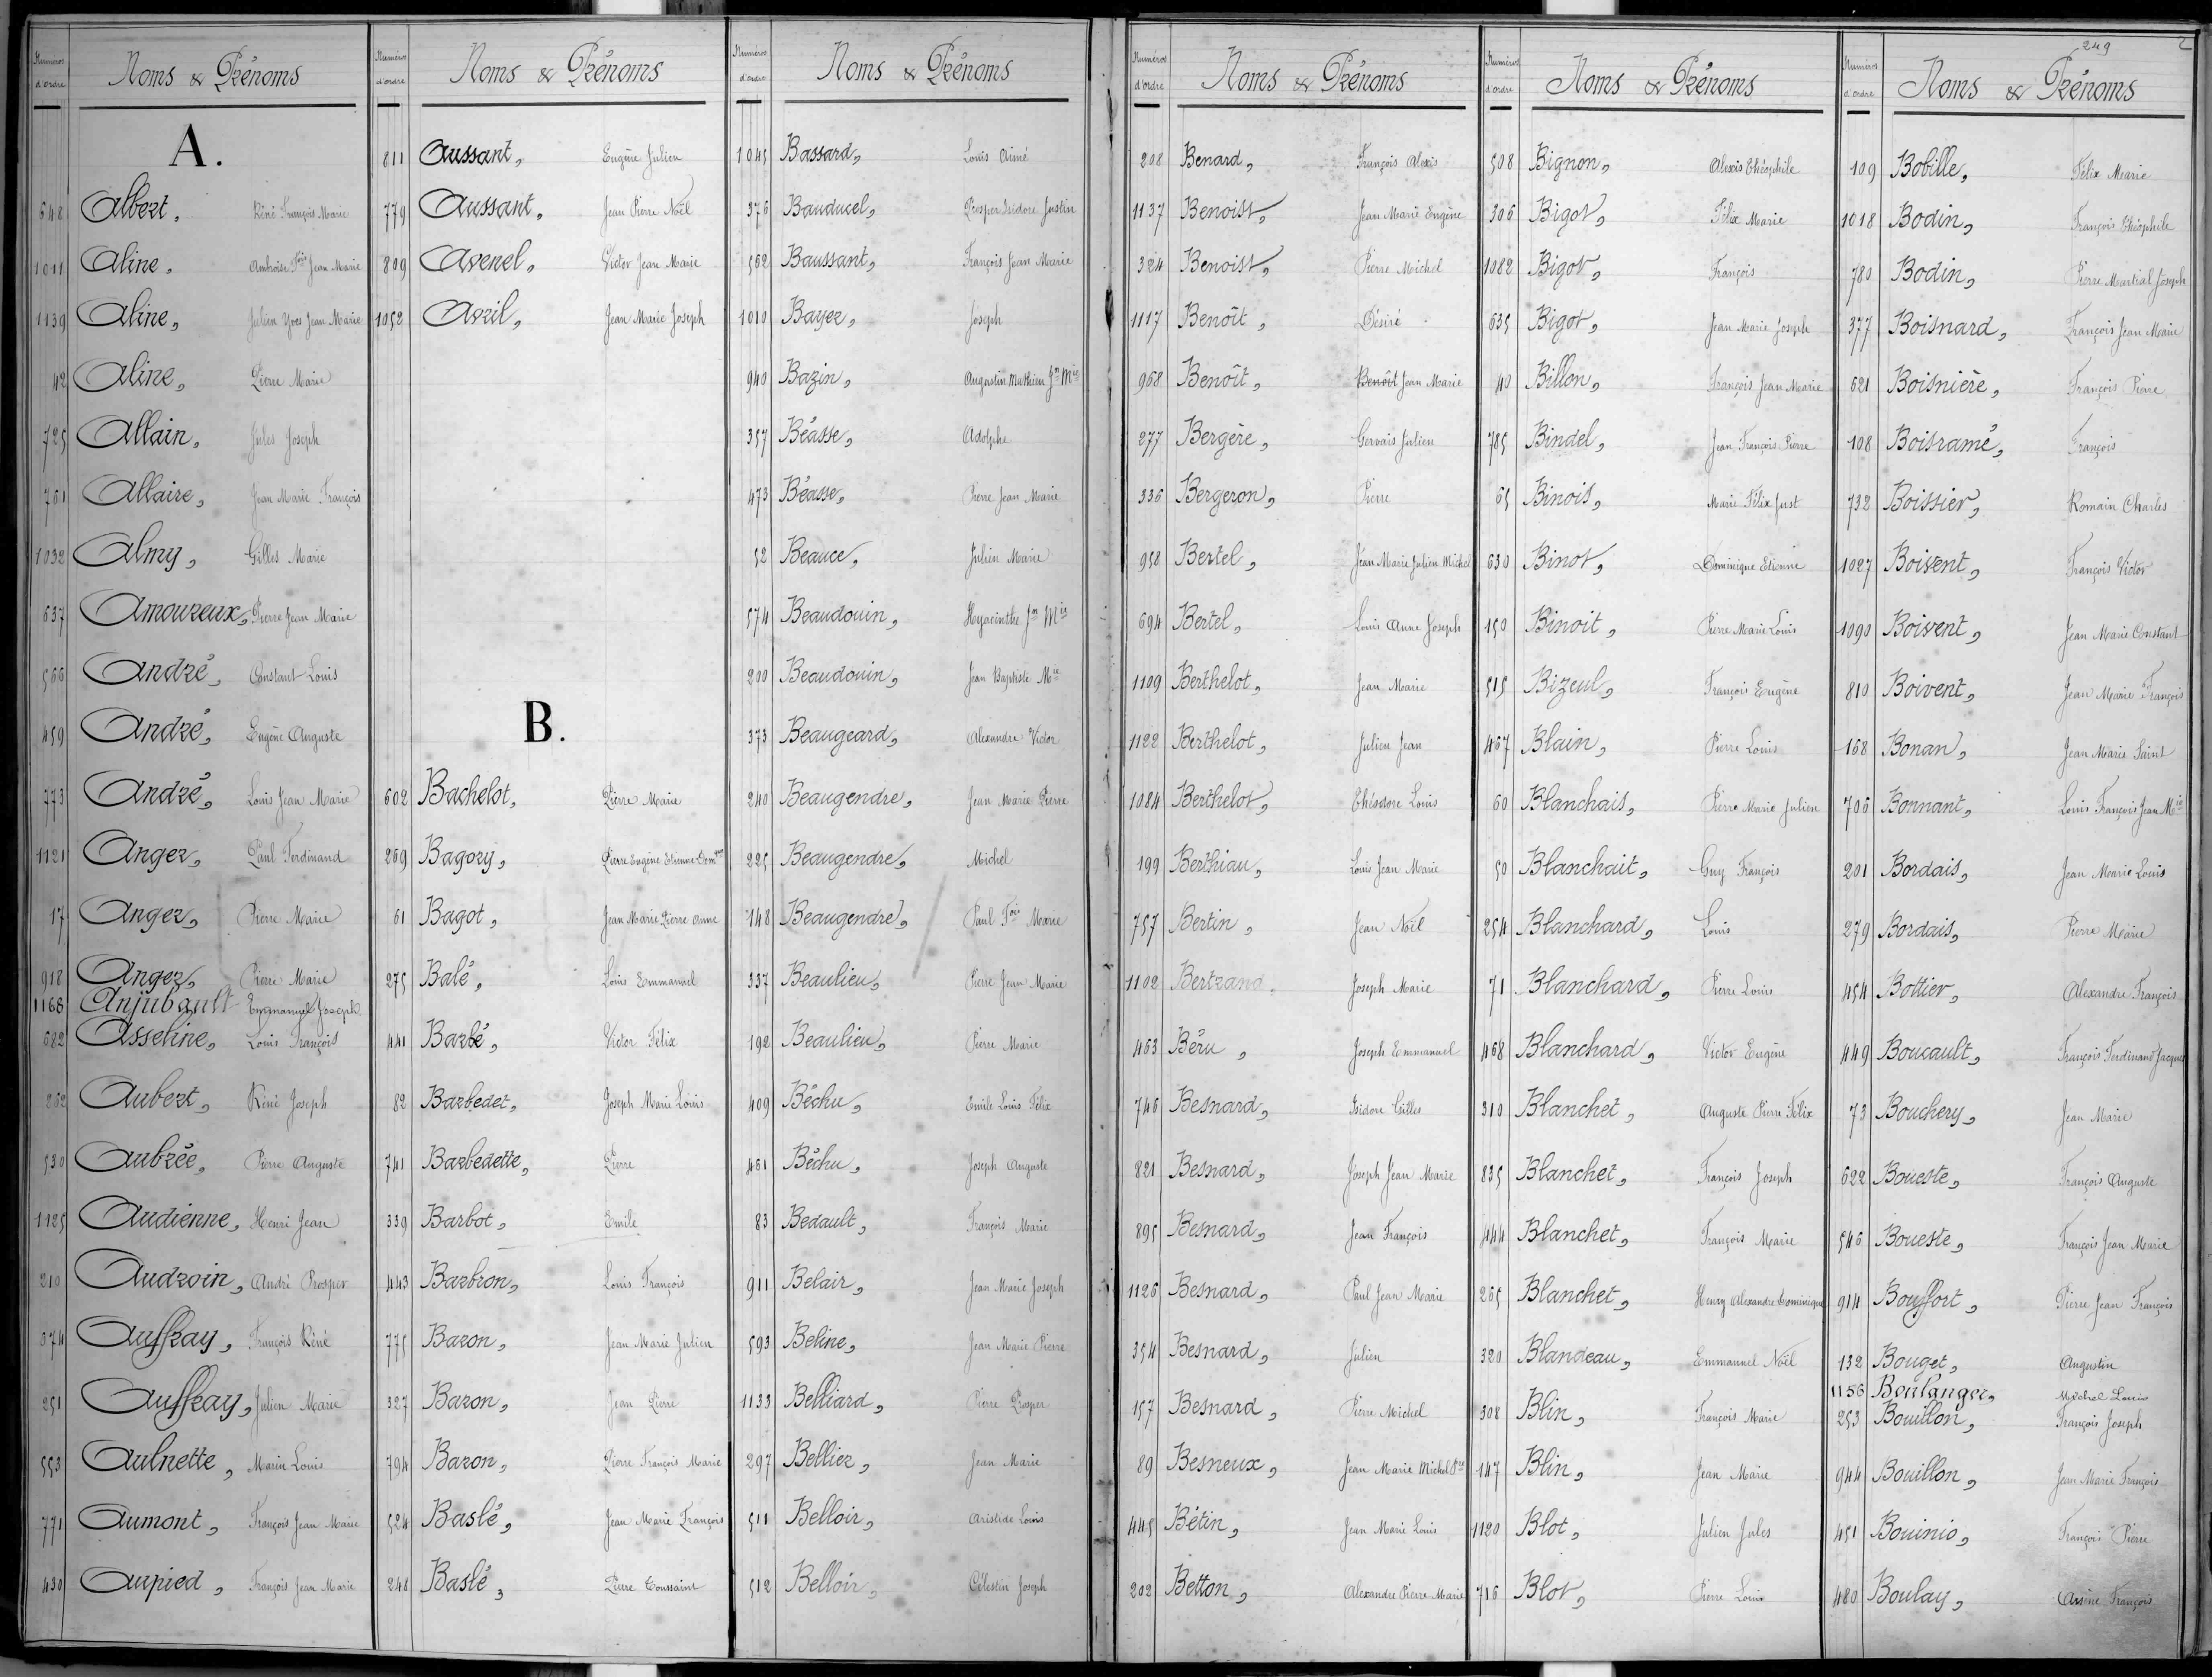 249
2
Numéros d'ordre Noms & Prénoms
A.
648 Albert, Réné François Marie
1011 Aline, Ambroise Fois Jean Marie
1139 Aline, Julien Yves Jean Marie
42 Aline, Pierre Marie
725 Allain, Jules Joseph
761 Allaire, Jean Marie François
1032 Almy, Gilles Marie
637 Amoureux, Pierre Jean Marie
566 André, Constant Louis
459 André, Eugène Auguste
773 André, Louis Jean Marie
1121 Anger, Paul Ferdinand
17 Anger, Pierre Marie
918 Anger, Pierre Marie
1168 Anjubault Emmanuel Joseph
682 Asseline, Louis François
862 Aubert, Réné Joseph
530 Aubrée, Pierre Auguste
1125 Audienne, Henri Jean
210 Audroin, André Prosper
974 Auffray, François Réné
251 Auffray, Julien Marie
553 Aulnette, Marie Louis
771 Aumont, François Jean Marie
430 Aupied, François Jean Marie
Numéros d'ordre Noms & Prénoms
811 Aussant, Eugène Julien
779 Aussant, Jean Pierre Noël
809 Avenel, Victor Jean Marie
1052 Avril, Jean Marie Joseph
B.
602 Bachelot, Pierre Marie
269 Bagory, Pierre Eugène Etienne Domque
61 Bagot, Jean Marie Pierre Anne
275 Balé, Louis Emmanuel
441 Barbé, Victor Félix
82 Barbedet, Joseph Marie Louis
741 Barbedette, Pierre
339 Barbot, Emile
443 Barbron, Louis François
775 Baron, Jean Marie Julien
327 Baron, Jean Pierre
794 Baron, Pierre François Marie
524 Baslé, Jean Marie François
248 Baslé, Pierre Toussaint
Numéros d'ordre Noms & Prénoms
1045 Bassard, Louis Aimé
376 Bauducel, Prosper Isidore Justin
562 Baussant, François Jean Marie
1010 Bayer, Joseph
940 Bazin, Augustin Mathieu Jn Mie
357 Béasse, Adolphe
473 Béasse, Pierre Jean Marie
52 Beauce, Julien Marie
574 Beaudouin, Hyacinthe Jn Mie
200 Beaudouin, Jean Baptiste Mie
373 Beaugeard, Alexandre Victor
240 Beaugendre, Jean Marie Pierre
225 Beaugendre, Michel
148 Beaugendre, Paul Fois Marie
337 Beaulieu, Pierre Jean Marie
192 Beaulieu, Pierre Marie
409 Béchu, Emile Louis Félix
461 Béchu, Joseph Auguste
83 Bedault, François Marie
911 Belair, Jean Marie Joseph
593 Beline, Jean Marie Pierre
1133 Belliard, Pierre Prosper
297 Bellier, Jean Marie
511 Belloir, Aristide Louis
512 Belloir, Célestin Joseph
Numéros d'ordre Noms & Prénoms
208 Benard, François Alexis
1137 Benoist, Jean Marie Eugène
324 Benoist, Pierre Michel
1117 Benoît, Désiré
968 Benoît, Benoît Jean Marie
277 Bergère, Gervais Julien
336 Bergeron, Pierre
958 Bertel, Jean Marie Julien Michel
694 Bertel, Louis Anne Joseph
1109 Berthelot, Jean Marie
1122 Berthelot, Julien Jean
1084 Berthelot, Théodore Louis
199 Berthiau, Louis Jean Marie
757 Bertin, Jean Noël
1102 Bertrand, Joseph Marie
463 Béru, Joseph Emmanuel
746 Besnard, Isidore Gilles
821 Besnard, Joseph Jean Marie
895 Besnard, Jean François
1126 Besnard, Paul Jean Marie
354 Besnard, Julien
157 Besnard, Pierre Michel
89 Besneux, Jean Marie Michel Pre
445 Bétin, Jean Marie Louis
202 Betton, Alexandre Pierre Marie
Numéros d'ordre Noms & Prénoms
508 Bignon, Alexis Théophile
306 Bigot, Félix Marie
1082 Bigot, François
635 Bigot, Jean Marie Joseph
40 Billon, François Jean Marie
785 Bindel, Jean François Pierre
65 Binois, Marie Félix Just
630 Binot, Dominique Etienne
150 Binoit, Pierre Marie Louis
515 Bizeul, François Eugène
467 Blain, Pierre Louis
60 Blanchais, Pierre Marie Julien
50 Blanchait, Guy François
254 Blanchard, Louis
71 Blanchard, Pierre Louis
468 Blanchard, Victor Eugène
310 Blanchet, Auguste Pierre Félix
835 Blanchet, François Joseph
444 Blanchet, François Marie
265 Blanchet, Henry Alexandre Dominique
320 Blandeau, Emmanuel Noël
308 Blin, François Marie
147 Blin, Jean Marie
1120 Blot, Julien Jules
716 Blot, Pierre Louis
Numéros d'ordre Noms & Prénoms
109 Bobille, Félix Marie
1018 Bodin, François Théophile
780 Bodin, Pierre Martial Joseph
377 Boisnard, François Jean Marie
621 Boisnière, François Pierre
108 Boisramé, François
732 Boissier, Romain Charles
1027 Boivent, François Victor
1090 Boivent, Jean Marie Constant
810 Boivent, Jean Marie François
168 Bonan, Jean Marie Saint
706 Bonnant, Louis François Jean Mie
201 Bordais, Jean Marie Louis
279 Bordais, Pierre Marie
454 Bottier, Alexandre François
449 Boucault, François Ferdinand Jacques
73 Bouchery, Jean Marie
622 Boueste, François Auguste
546 Boueste, François Jean Marie
914 Bouffort, Pierre Jean François
132 Bouget, Augustin
1156 Boulanger, Michel Louis
253 Bouillon, François Joseph
944 Bouillon, Jean Marie François
451 Bouinio, François Pierre
480 Boulay, Arsène François